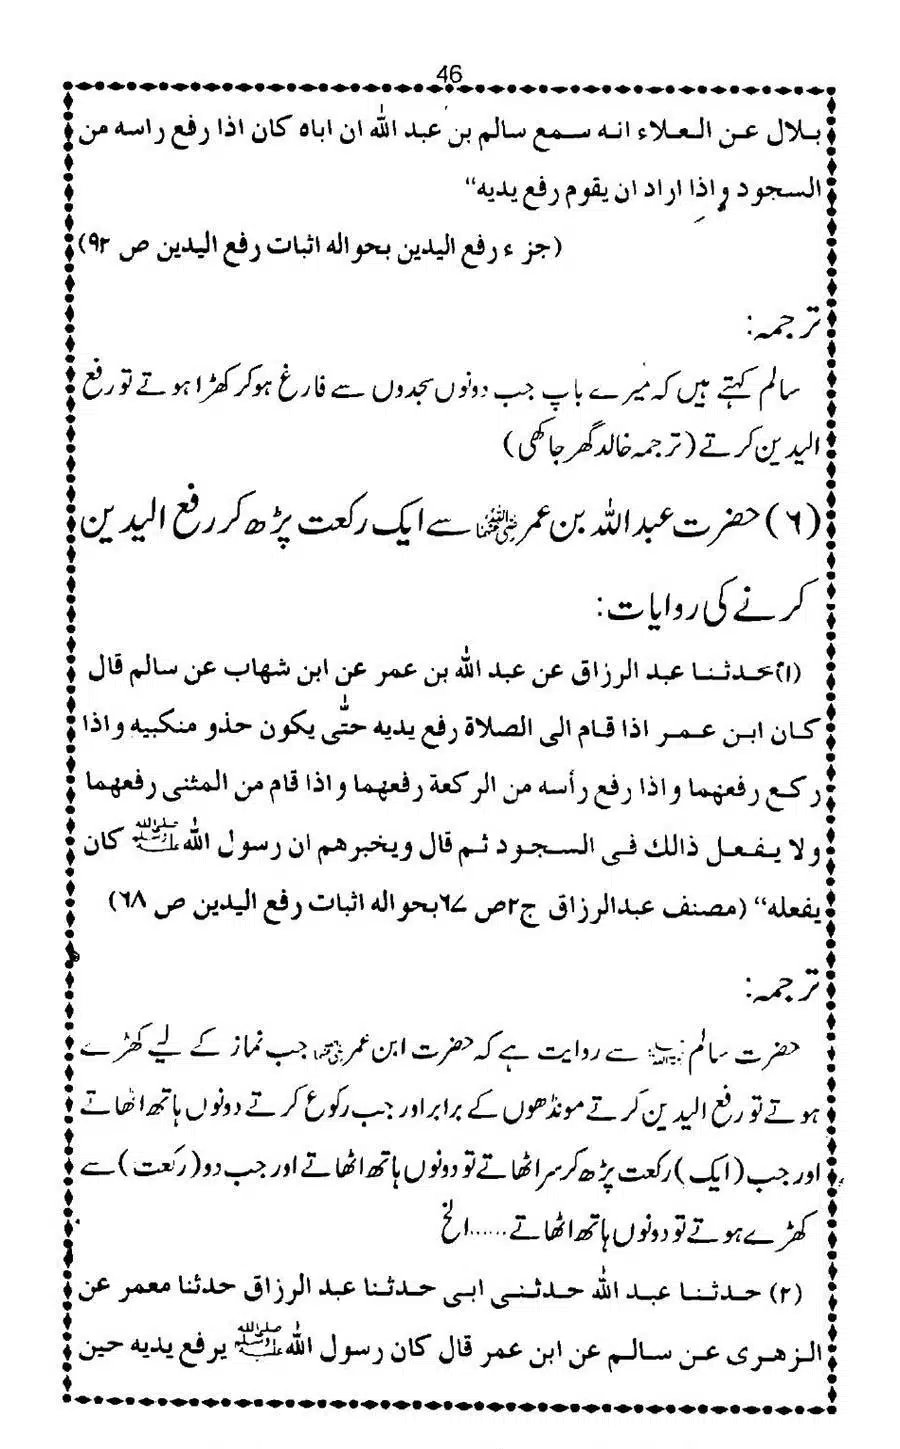 46
بلال عن العلاء انه سمع سالم بن عبد اللّٰه ان اباه كان اذا رفع راسه من
السجود و اذا اراد ان يقوم رفع يديه“
(جزء رفع اليدين بحواله اثبات رفع اليدين ص ۹۲)
ترجمہ:
سالم کہتے ہیں کہ میرے باپ جب دونوں سجدوں سے فارغ ہو کر کھڑا ہوتے تو رفع
الیدین کرتے (ترجمہ خالد گھرجاکھی)
(۶) حضرت عبداللہ بن عمر رضی اللہ عنہما سے ایک رکعت پڑھ کر رفع الیدین
کرنے کی روایات:
(۱) حدثنا عبد الرزاق عن عبد اللّٰه بن عمر عن ابن شهاب عن سالم قال
كان ابن عمر اذا قام الى الصلاة رفع يديه حتّٰى يكون حذو منكبيه و اذا
ركع رفعهما و اذا رفع رأسه من الركعة رفعهما و اذا قام من المثنى رفعهما
ولا يفعل ذالك فى السجود ثم قال ويخبرهم ان رسول اللّٰه ﷺ كان
يفعله“ (مصنف عبدالرزاق ج۲ص ۶۷بحواله اثبات رفع اليدين ص ۶۸)
ترجمہ:
حضرت سالم سے روایت ہے کہ حضرت ابن عمر رضی اللہ عنہما جب نماز کے لیے کھڑے
ہوتے تو رفع الیدین کرتے مونڈھوں کے برابر اور جب رکوع کرتے دونوں ہاتھ اٹھاتے
اور جب (ایک) رکعت پڑھ کر سر اٹھاتے تو دونوں ہاتھ اٹھاتے اور جب دو (رکعت) سے
کھڑے ہوتے تو دونوں ہاتھ اٹھاتے......الخ
(۲) حدثنا عبد اللّٰه حدثنى ابى حدثنا عبد الرزاق حدثنا معمر عن
الزهرى عن سالم عن ابن عمر قال كان رسول اللّٰه ﷺ يرفع يديه حين